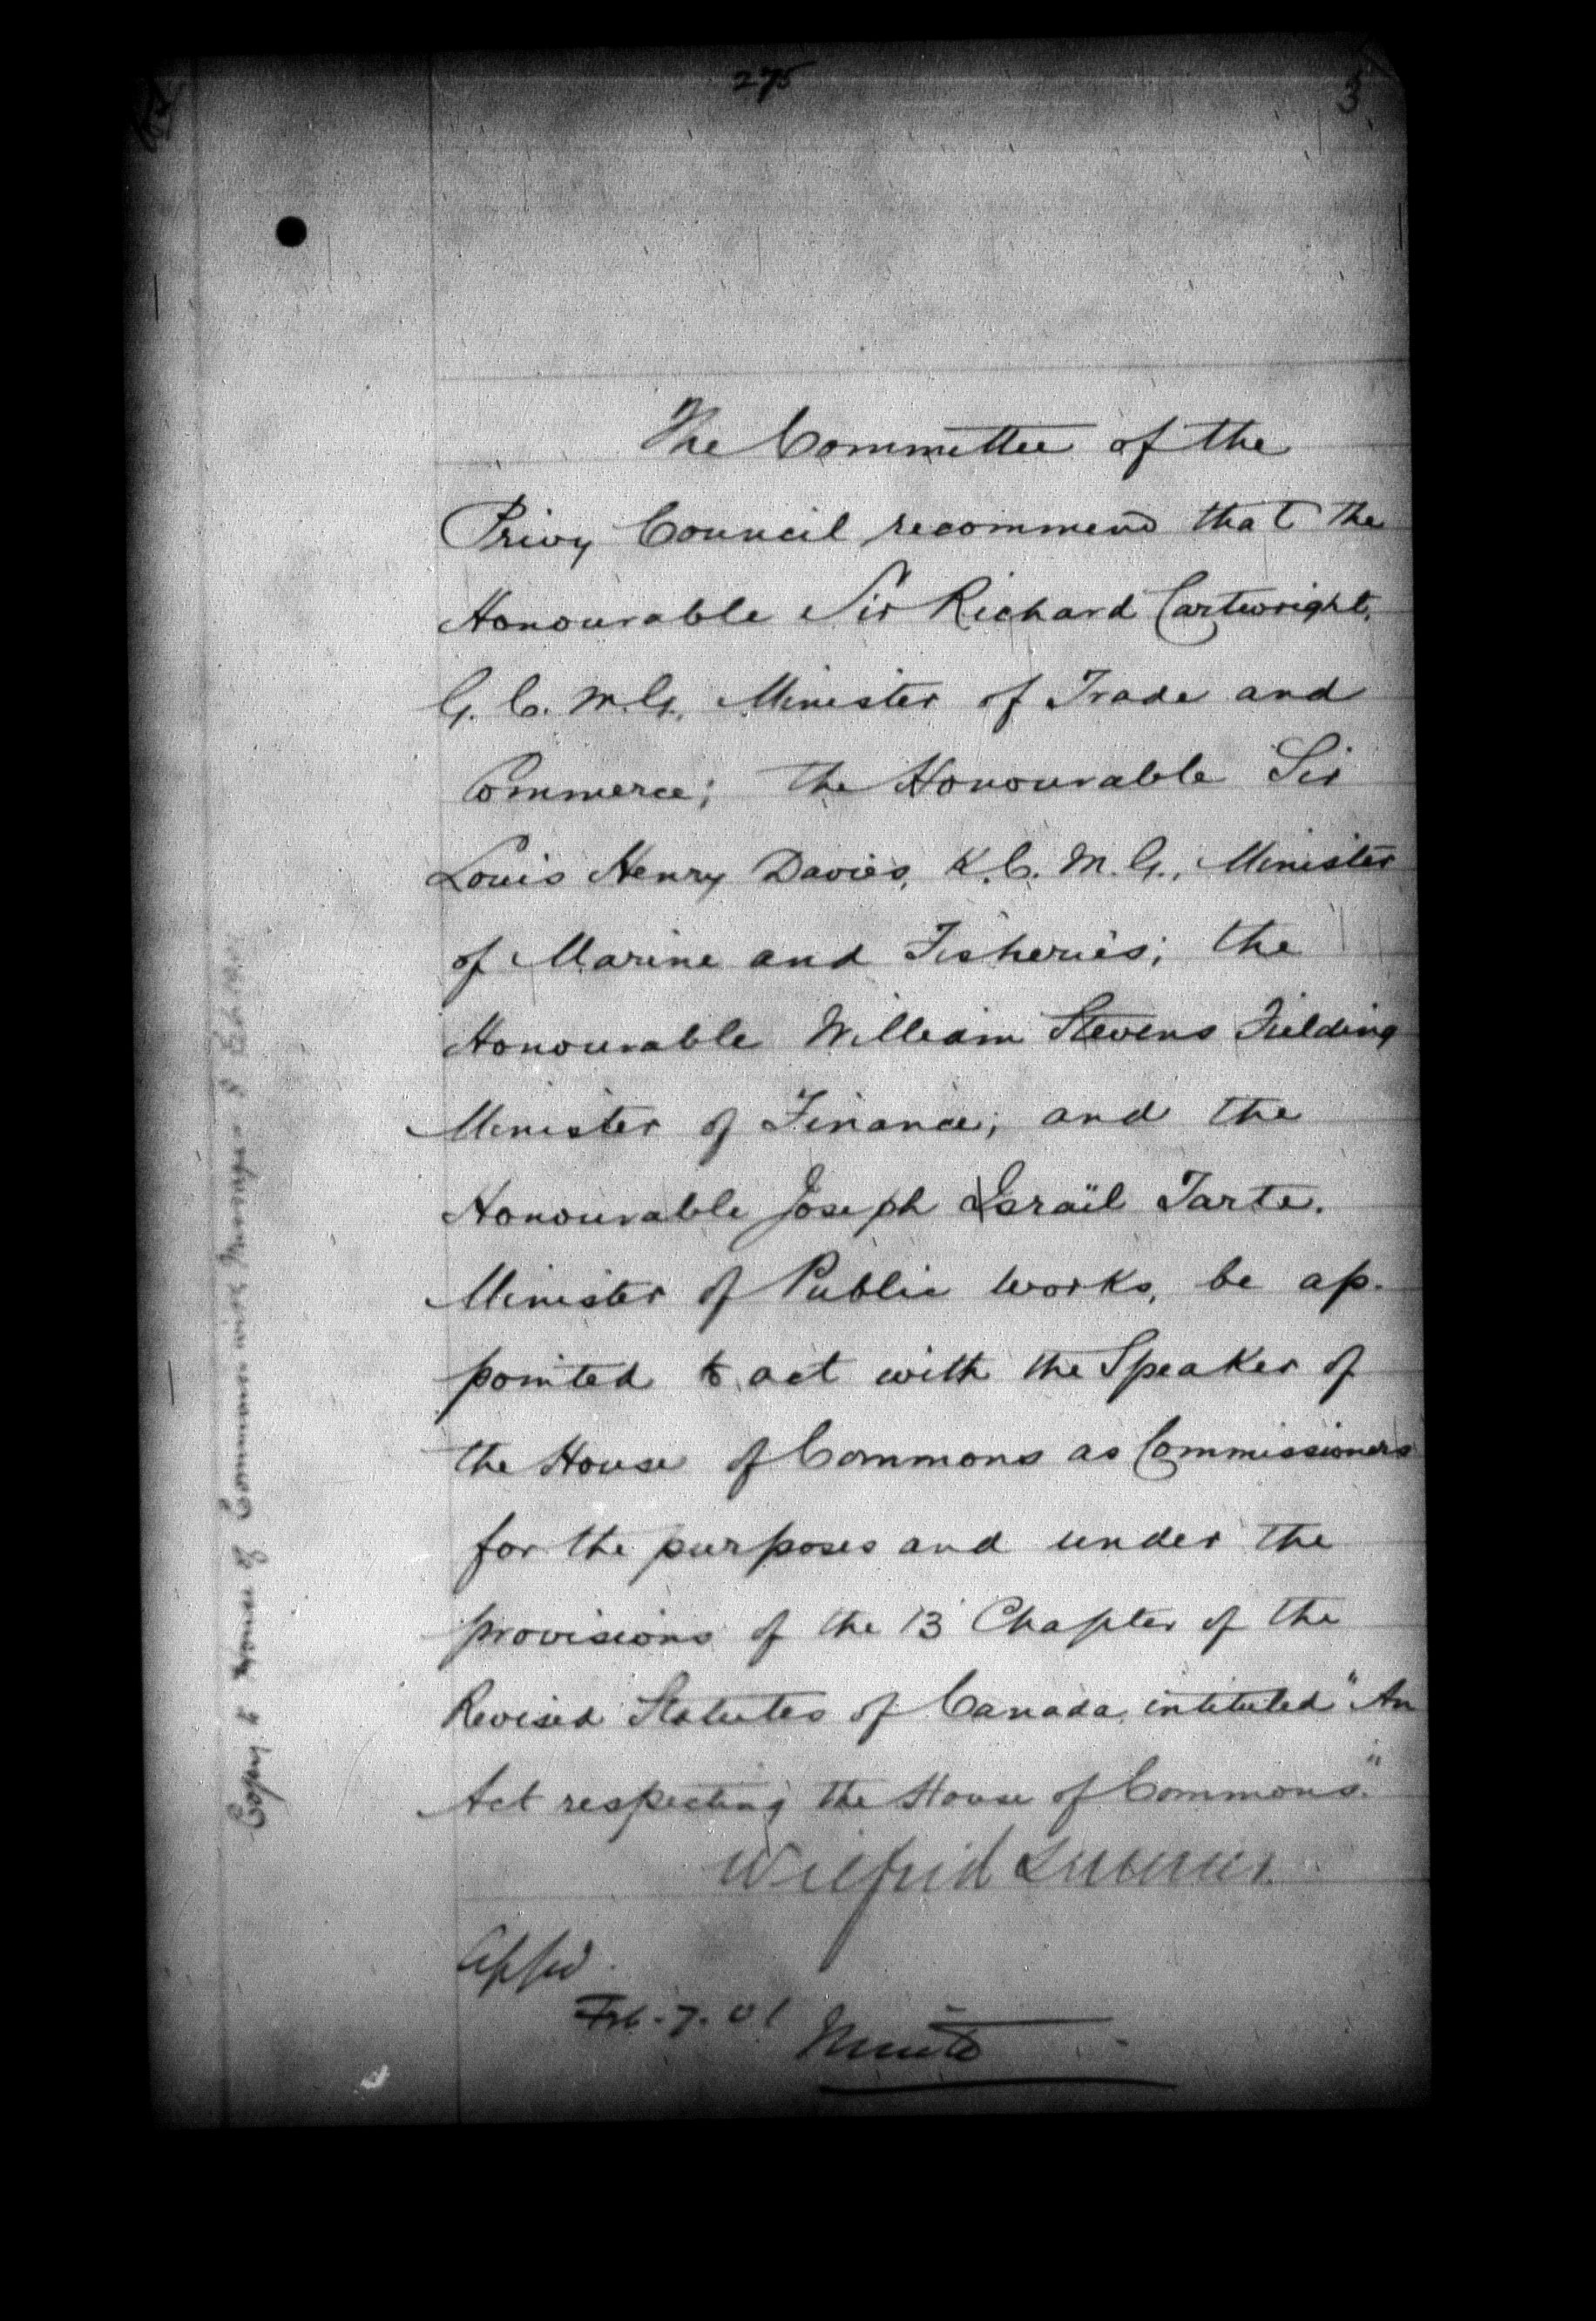 275
3
The Committee of the
Privy Council recommend that the
Honourable Sir Richard Cartwright,
G. C. M. G. Minister of Trade and
Commerce; the Honourable Sir
Louis Henry Davies, K. C. M. G., Minister
of Marine and Fisheries; the
Honourable William Stevens Fielding
Minister of Finance; and the
Honourable Joseph Israël Tarte.
Minister of Public Works, be ap-
pointed to act with the Speaker of
the House of Commons as Commissioners
for the purposes and under the
provisions of the 13 Chapter of the
Revised Statutes of Canada, intituled "An
Act respecting the House of Commons."
Wilfrid Laurier
Appd.
Feb. 7. 01
Minto
Copy to House of Commons with Message